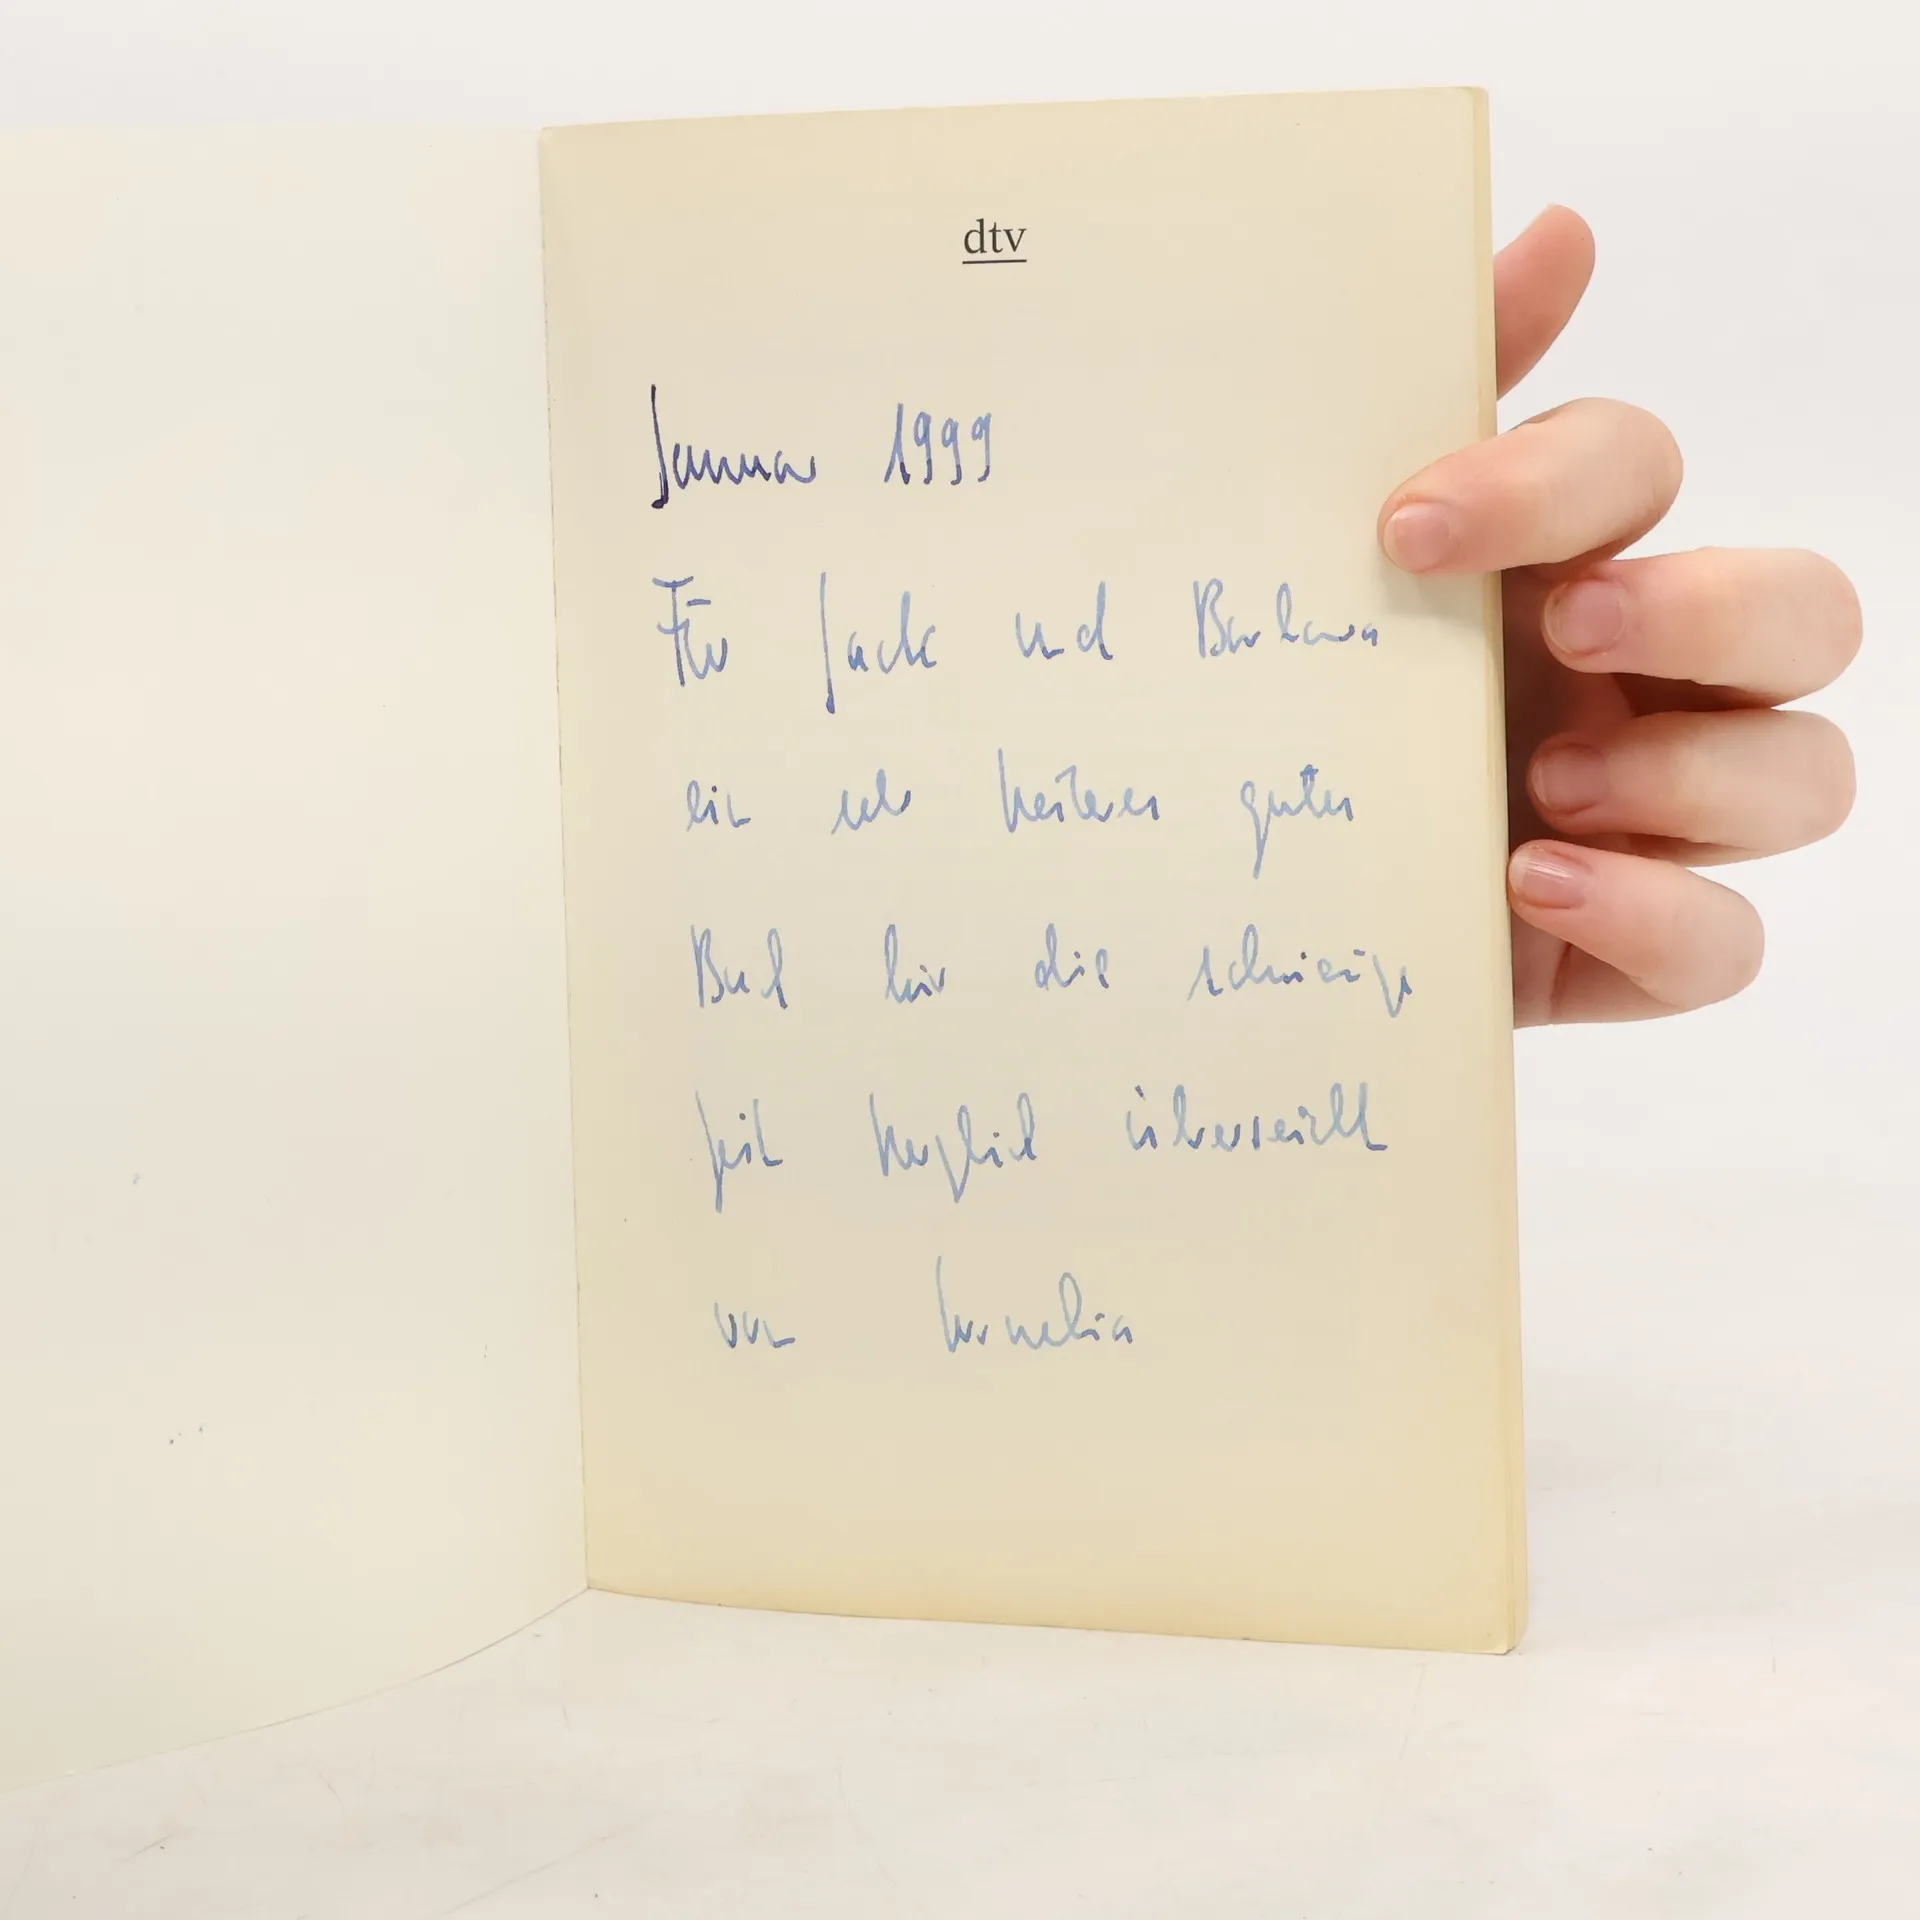 dtv
Sommer 1999
Für Jack und Barbara
ein sehr heiteres gutes
Buch für die schwierige
Zeit herzlich überreicht
von Kornelia